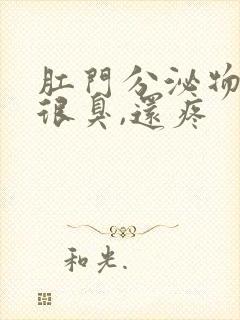 肛門分泌物
很臭,還疼
和光.